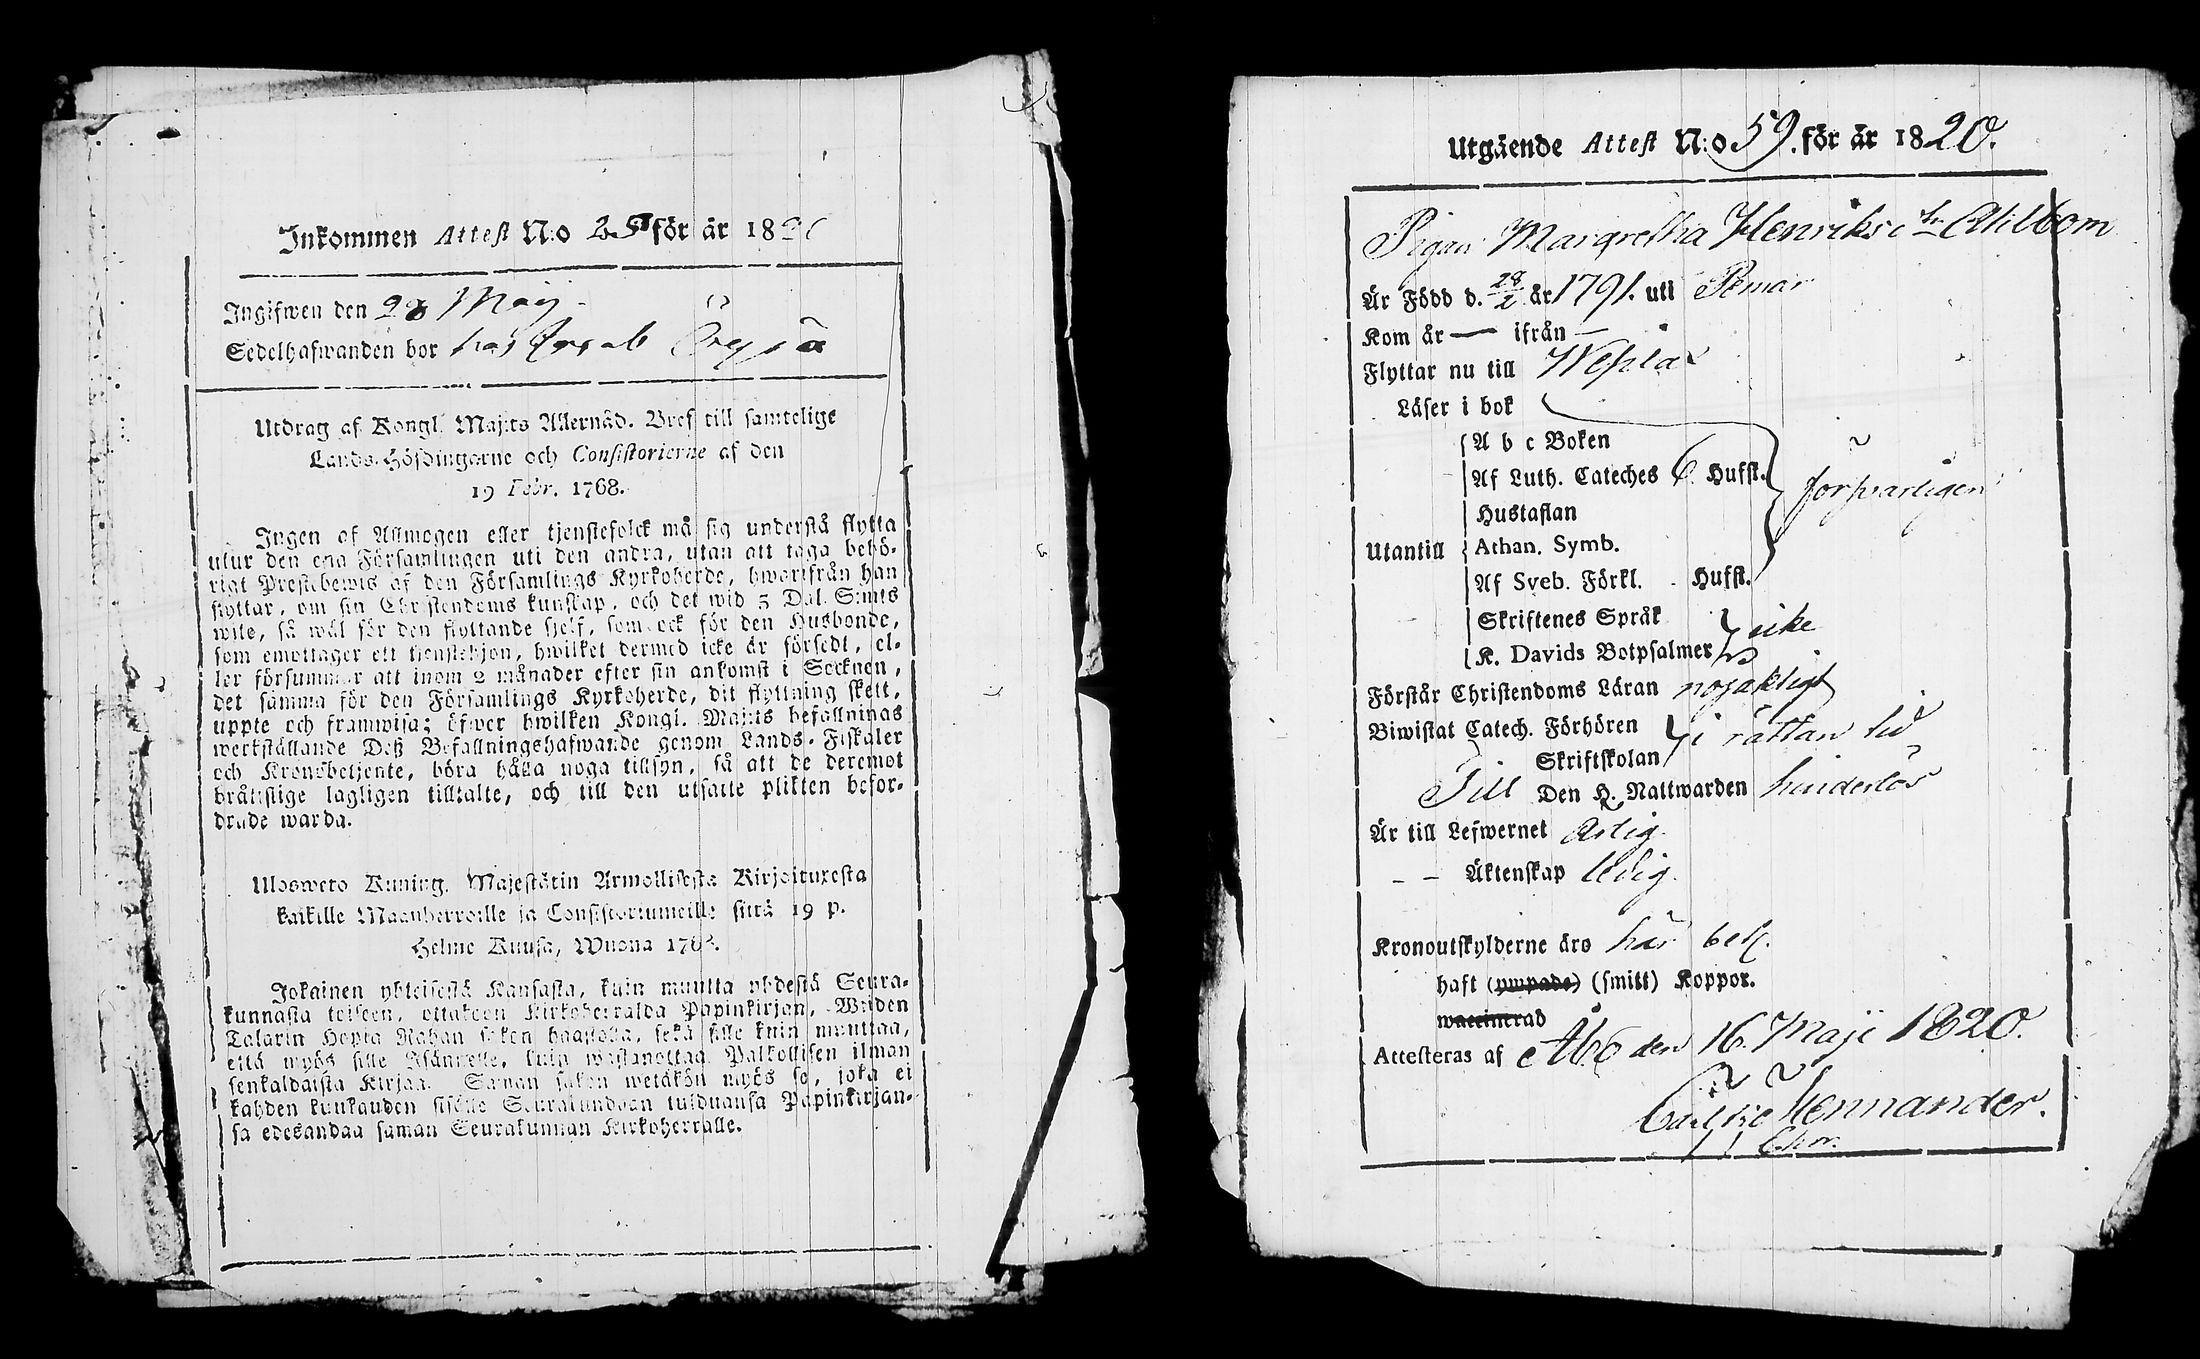 Inkommen Attest N:o 25 för år 18
Ingifwen den 28 Maij
Sedelhafwanden bor hos
Utdrag af Kongl. Maj:ts Allernåd. Bref till samtelige
Lands-Höfdingarne och Consistorierne af den
19 Febr. 1768.
Ingen af Allmogen eller tjenstefolck må sig understå flytta
utur den ena Församlingen uti den andra, utan att taga behö-
rigt Prestabewis af den Församlings Kyrkoherde, hwarifrån han
flyttar, om sin Christendoms kunskap, och det wid 5 Dal. S:mts
wite, så wäl för den flyttande sjelf, som ock för den Husbonde,
som emottager ett tjenstehjon, hwilket dermed icke är försedt, el-
ler försummar att inom 2 månader efter sin ankomst i Socknen,
det samma för den Församlings Kyrkoherde, dit flyttning skett,
uppte och framwisa; öfwer hwilken Kongl. Maj:ts befallnings
werkställande Deß Befallningshafwande genom Lands-Fiskaler
och Kronobetjente, böra hålla noga tillsyn, så att de deremot
bråttslige lagligen tilltalte, och till den utsatte plikten befor-
drade warda.
Ulosweto Kuning. Majestätin Armollisesta Kirjoituxesta
kaikille Maanherroille ja Consistoriumeille siitä 19 p.
Helme Kuusa, Wuona 1768.
Jokainen yhteisestä Kansasta, kuin muutta yhdestä Seura-
kunnasta toiseen, ottakoon Kirkoherralda Papinkirjan, Wiiden
Talarin Hopia Rahan sakon haastolla, sekä sille kuin muuttaa,
että myös sille Isännelle, kuin wastanottaa Palkollisen ilman
senkaldaista Kirjaa. Saman sakon wetäkön myös se, joka ei
kahden kuukauden sisälle Seurakundaan tulduansa Papinkirjan-
sa edesandaa saman Seurakunnan Kirkoherralle.
Utgående Attest N:o 59. för år 1820.
Pigan Margretha Henriksdr Ahlbom
Är Född d. 28/2 år 1791. uti Pemar
Kom år — ifrån —
Flyttar nu till
Läser i bok
A b c Boken
Af Luth. Cateches 6 Hufst.
Hustaflan
försvarligen
Utantill Athan. Symb.
Af Sveb. Förkl. - Hufst.
Skriftenes Språk
icke
K. Davids Botpsalmer
Förstår Christendoms Läran nojaktigt
Biwistat Catech. Förhören
i rättan tid
Skriftskolan
Till Den H. Nattwarden hinderlös
Är till Lefwernet ärlig
— — Äktenskap ledig.
Kronoutskylderne äro här bet.
haft (ympade) (smitt) Koppor.
waccinerad
Attesteras af Åbo den 16. Maji 1820.
Hennander.